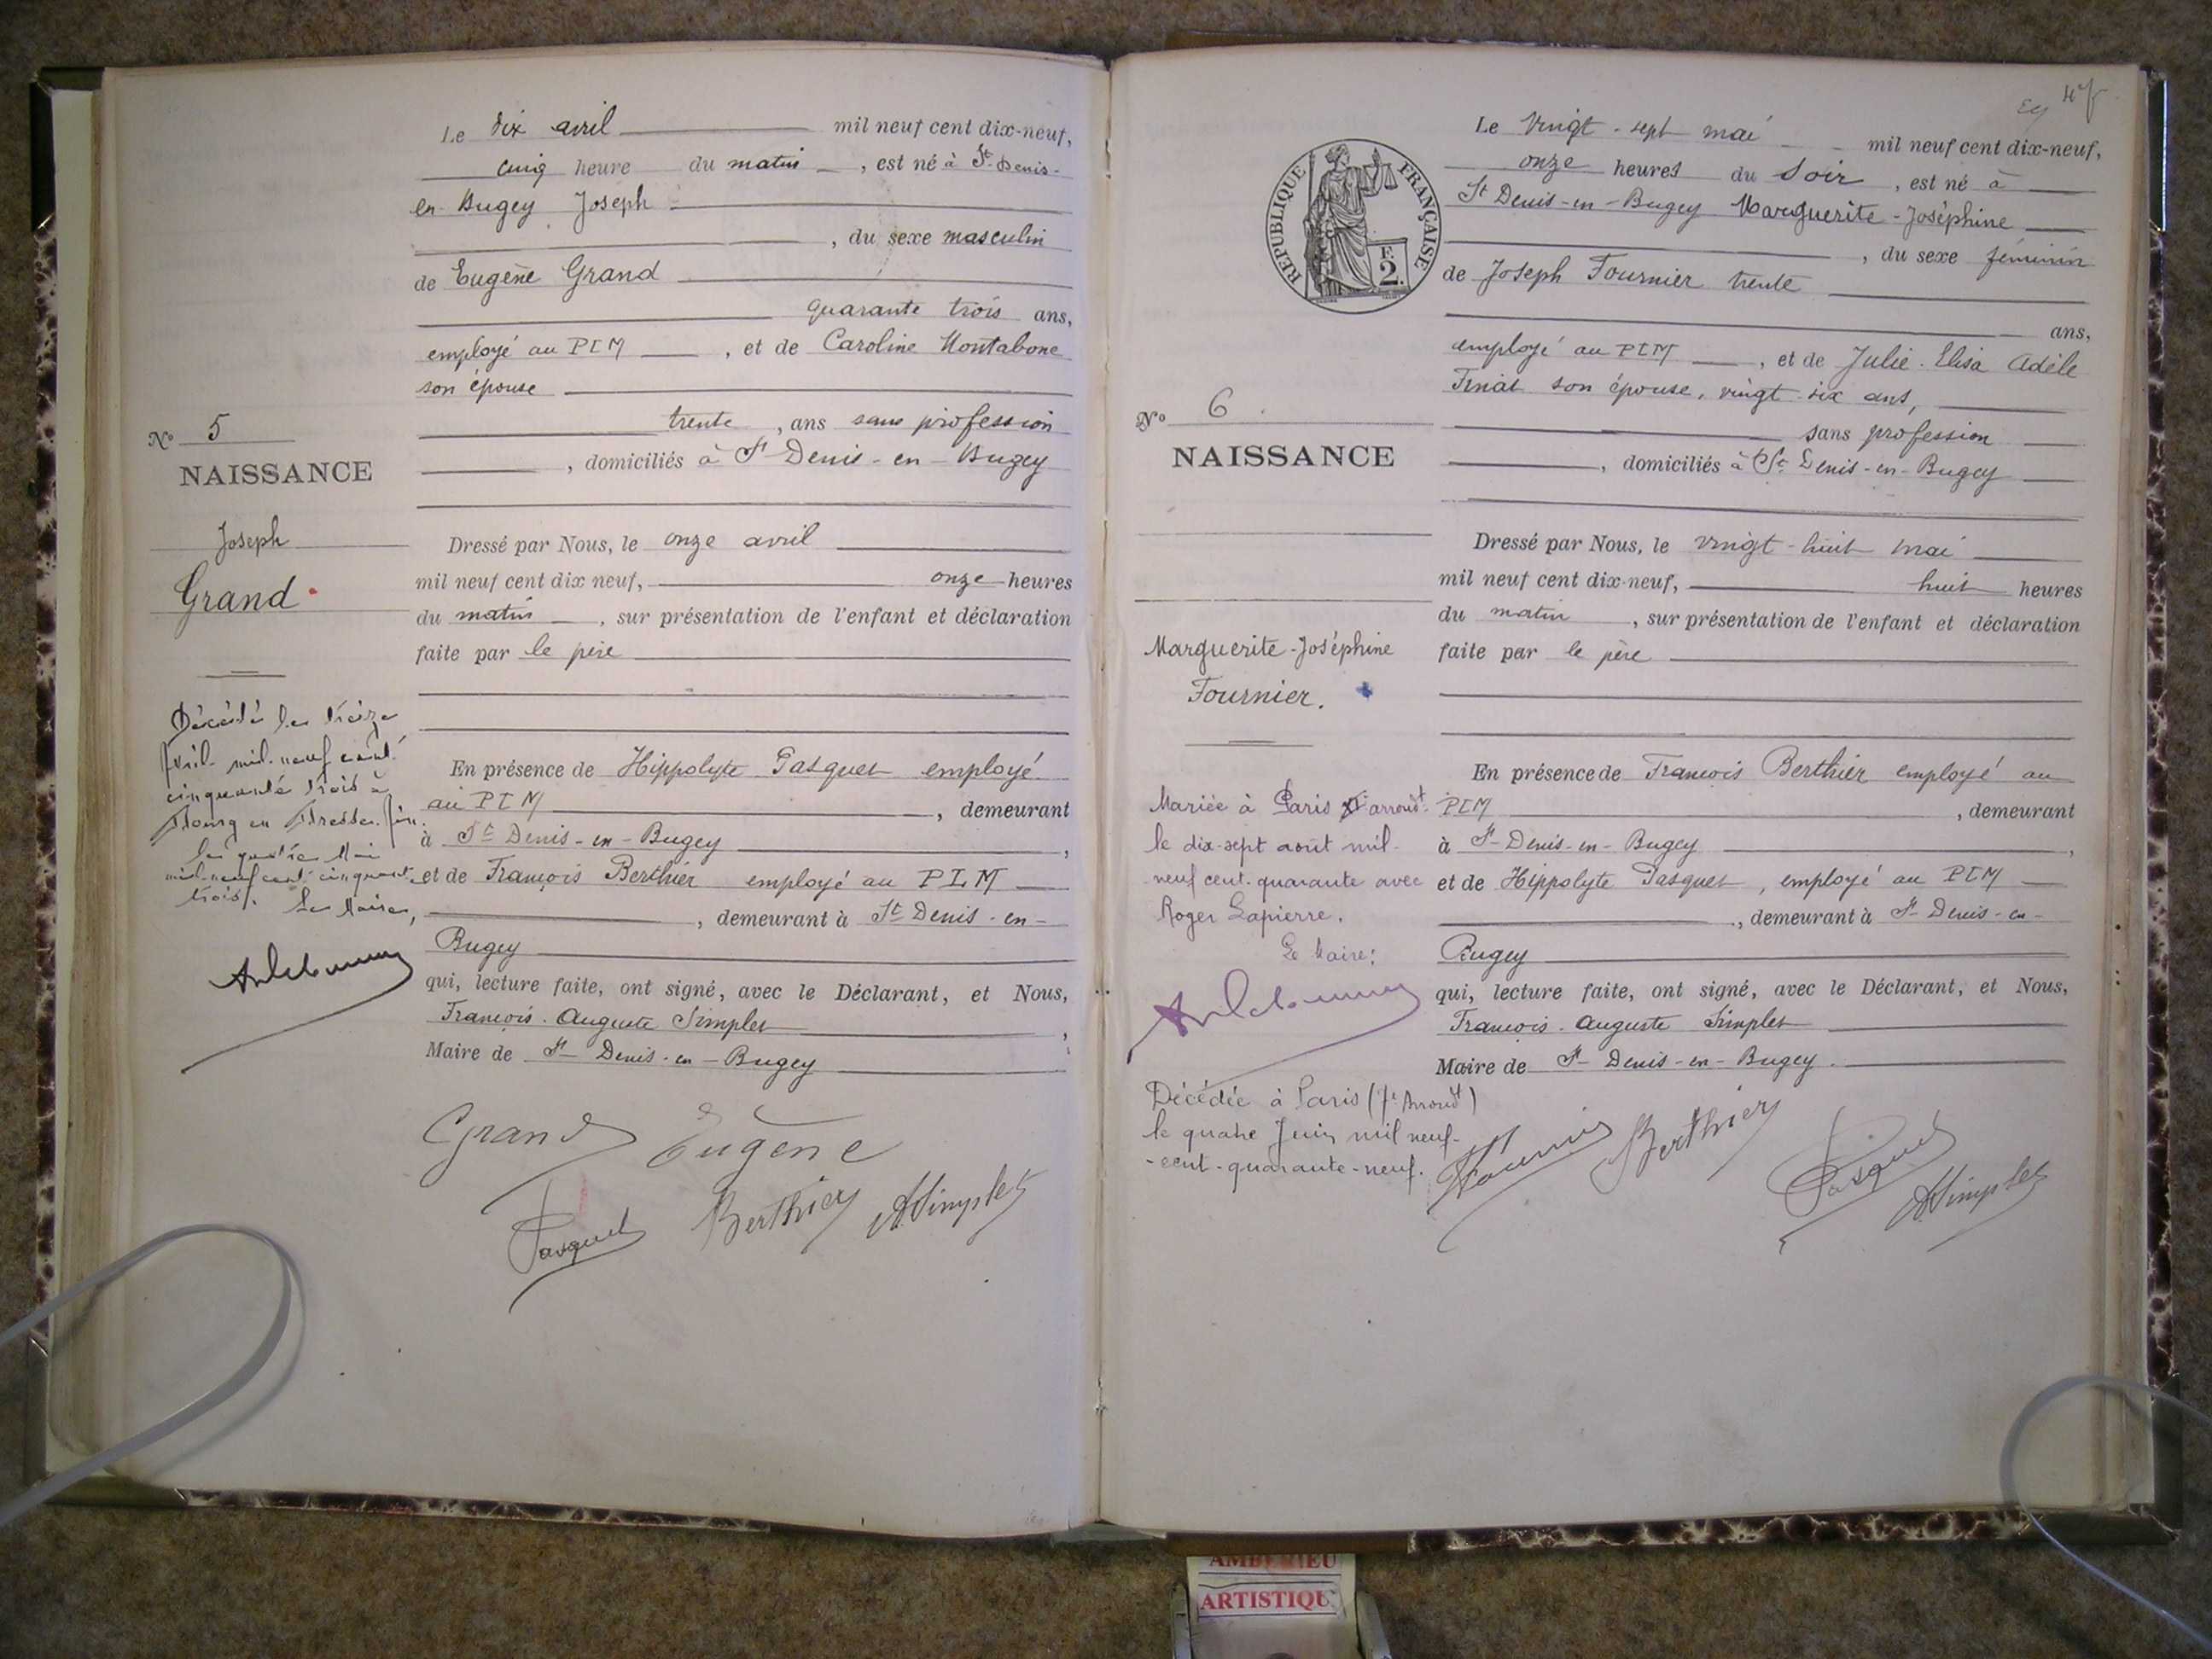 Le dix avril mil neuf cent dix-neuf,
cinq heure du matin, est né à St Denis-
en-Bugey Joseph
, du sexe masculin
de Eugène Grand
quarante trois ans,
employé au PLM, et de Caroline Montabone
son épouse
trente, ans sans profession
, domiciliés à St Denis-en-Bugey
N° 5
NAISSANCE
Joseph
Grand
Dressé par Nous, le onze avril
mil neuf cent dix neuf, onze heures
du matin, sur présentation de l'enfant et déclaration
faite par le père
Décédé le treize
Avril mil neuf cent
cinquante trois à
Bourg en Bresse. Ain.
le quatre Mai
mil neuf cent cinquante
trois. Le Maire,
En présence de Hippolyte Pasquet employé
au PLM, demeurant
à St Denis-en-Bugey,
et de François Berthier employé au PLM
, demeurant à St Denis-en-
Bugey
qui, lecture faite, ont signé, avec le Déclarant, et Nous,
François-Auguste Simplet,
Maire de St Denis-en-Bugey
Grand Eugène
Pasquet Berthier ASimplet
Le vingt-sept mai mil neuf cent dix-neuf,
onze heures du soir, est né à
St Denis-en-Bugey Marguerite-Joséphine
, du sexe féminin
de Joseph Fournier trente
ans,
employé au PLM, et de Julie-Elisa Adèle
son épouse, vingt-six ans,
sans profession
, domiciliés à St Denis-en-Bugey
RÉPUBLIQUE FRANÇAISE
F.
2.
N° 6
NAISSANCE
Marguerite-Joséphine
Fournier.
Dressé par Nous, le vingt-huit mai
mil neuf cent dix-neuf, huit heures
du matin, sur présentation de l'enfant et déclaration
faite par le père
Mariée à Paris arrondt
le dix-sept août mil
neuf cent quarante avec
Roger Lapierre.
Le Maire:
Décédée à Paris (7e Arrondt)
le quatre Juin mil neuf-
-cent-quarante-neuf.
En présence de François Berthier employé au
PLM, demeurant
à St Denis-en-Bugey,
et de Hippolyte Pasquet, employé au PLM
, demeurant à St Denis-en-
Bugey
qui, lecture faite, ont signé, avec le Déclarant, et Nous,
François-Auguste Simplet
Maire de St Denis-en-Bugey.
Fournier Berthier Pasquet ASimplet
AMBERIEU
ARTISTIQU